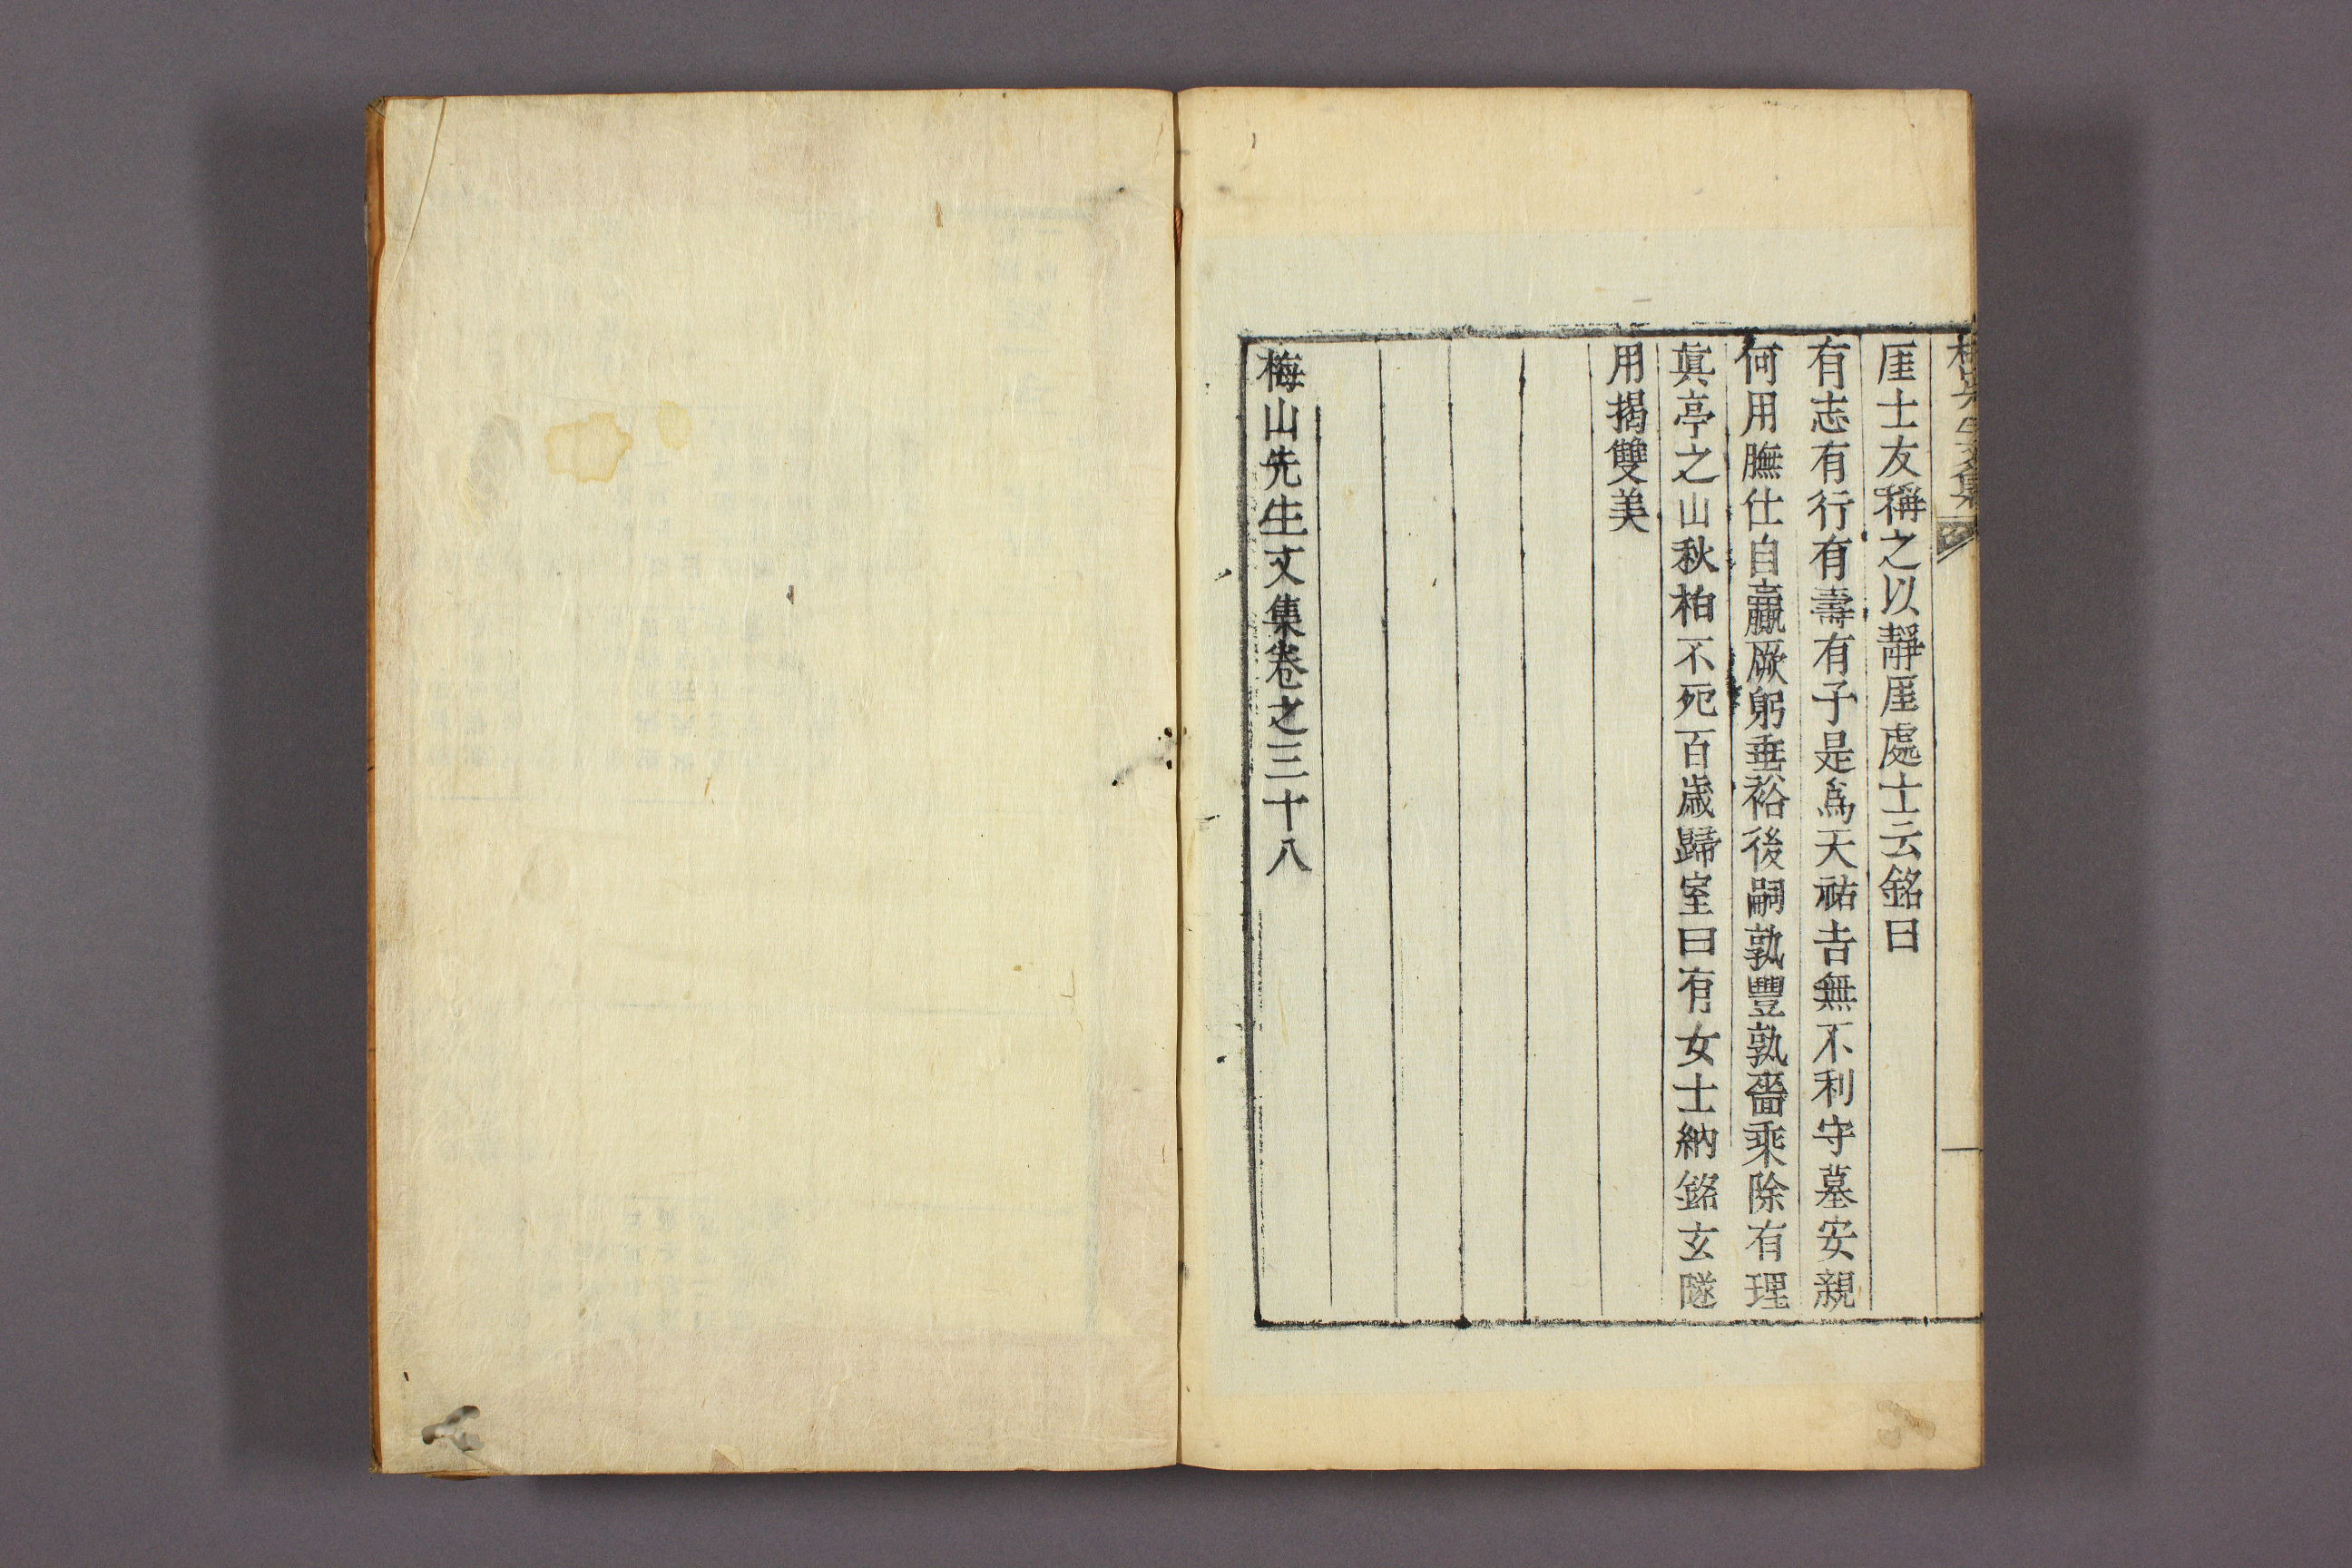 厓士友稱之以靜厓處士云銘曰
有志有行有壽有子是爲天祐吉無不利守墓安親
何用膴仕自贏厥躬垂裕後嗣孰豐孰嗇乘除有理
眞亭之山秋柏不死百歲歸室曰有女士納銘玄隧
用揭雙美
梅山先生文集卷之三十八